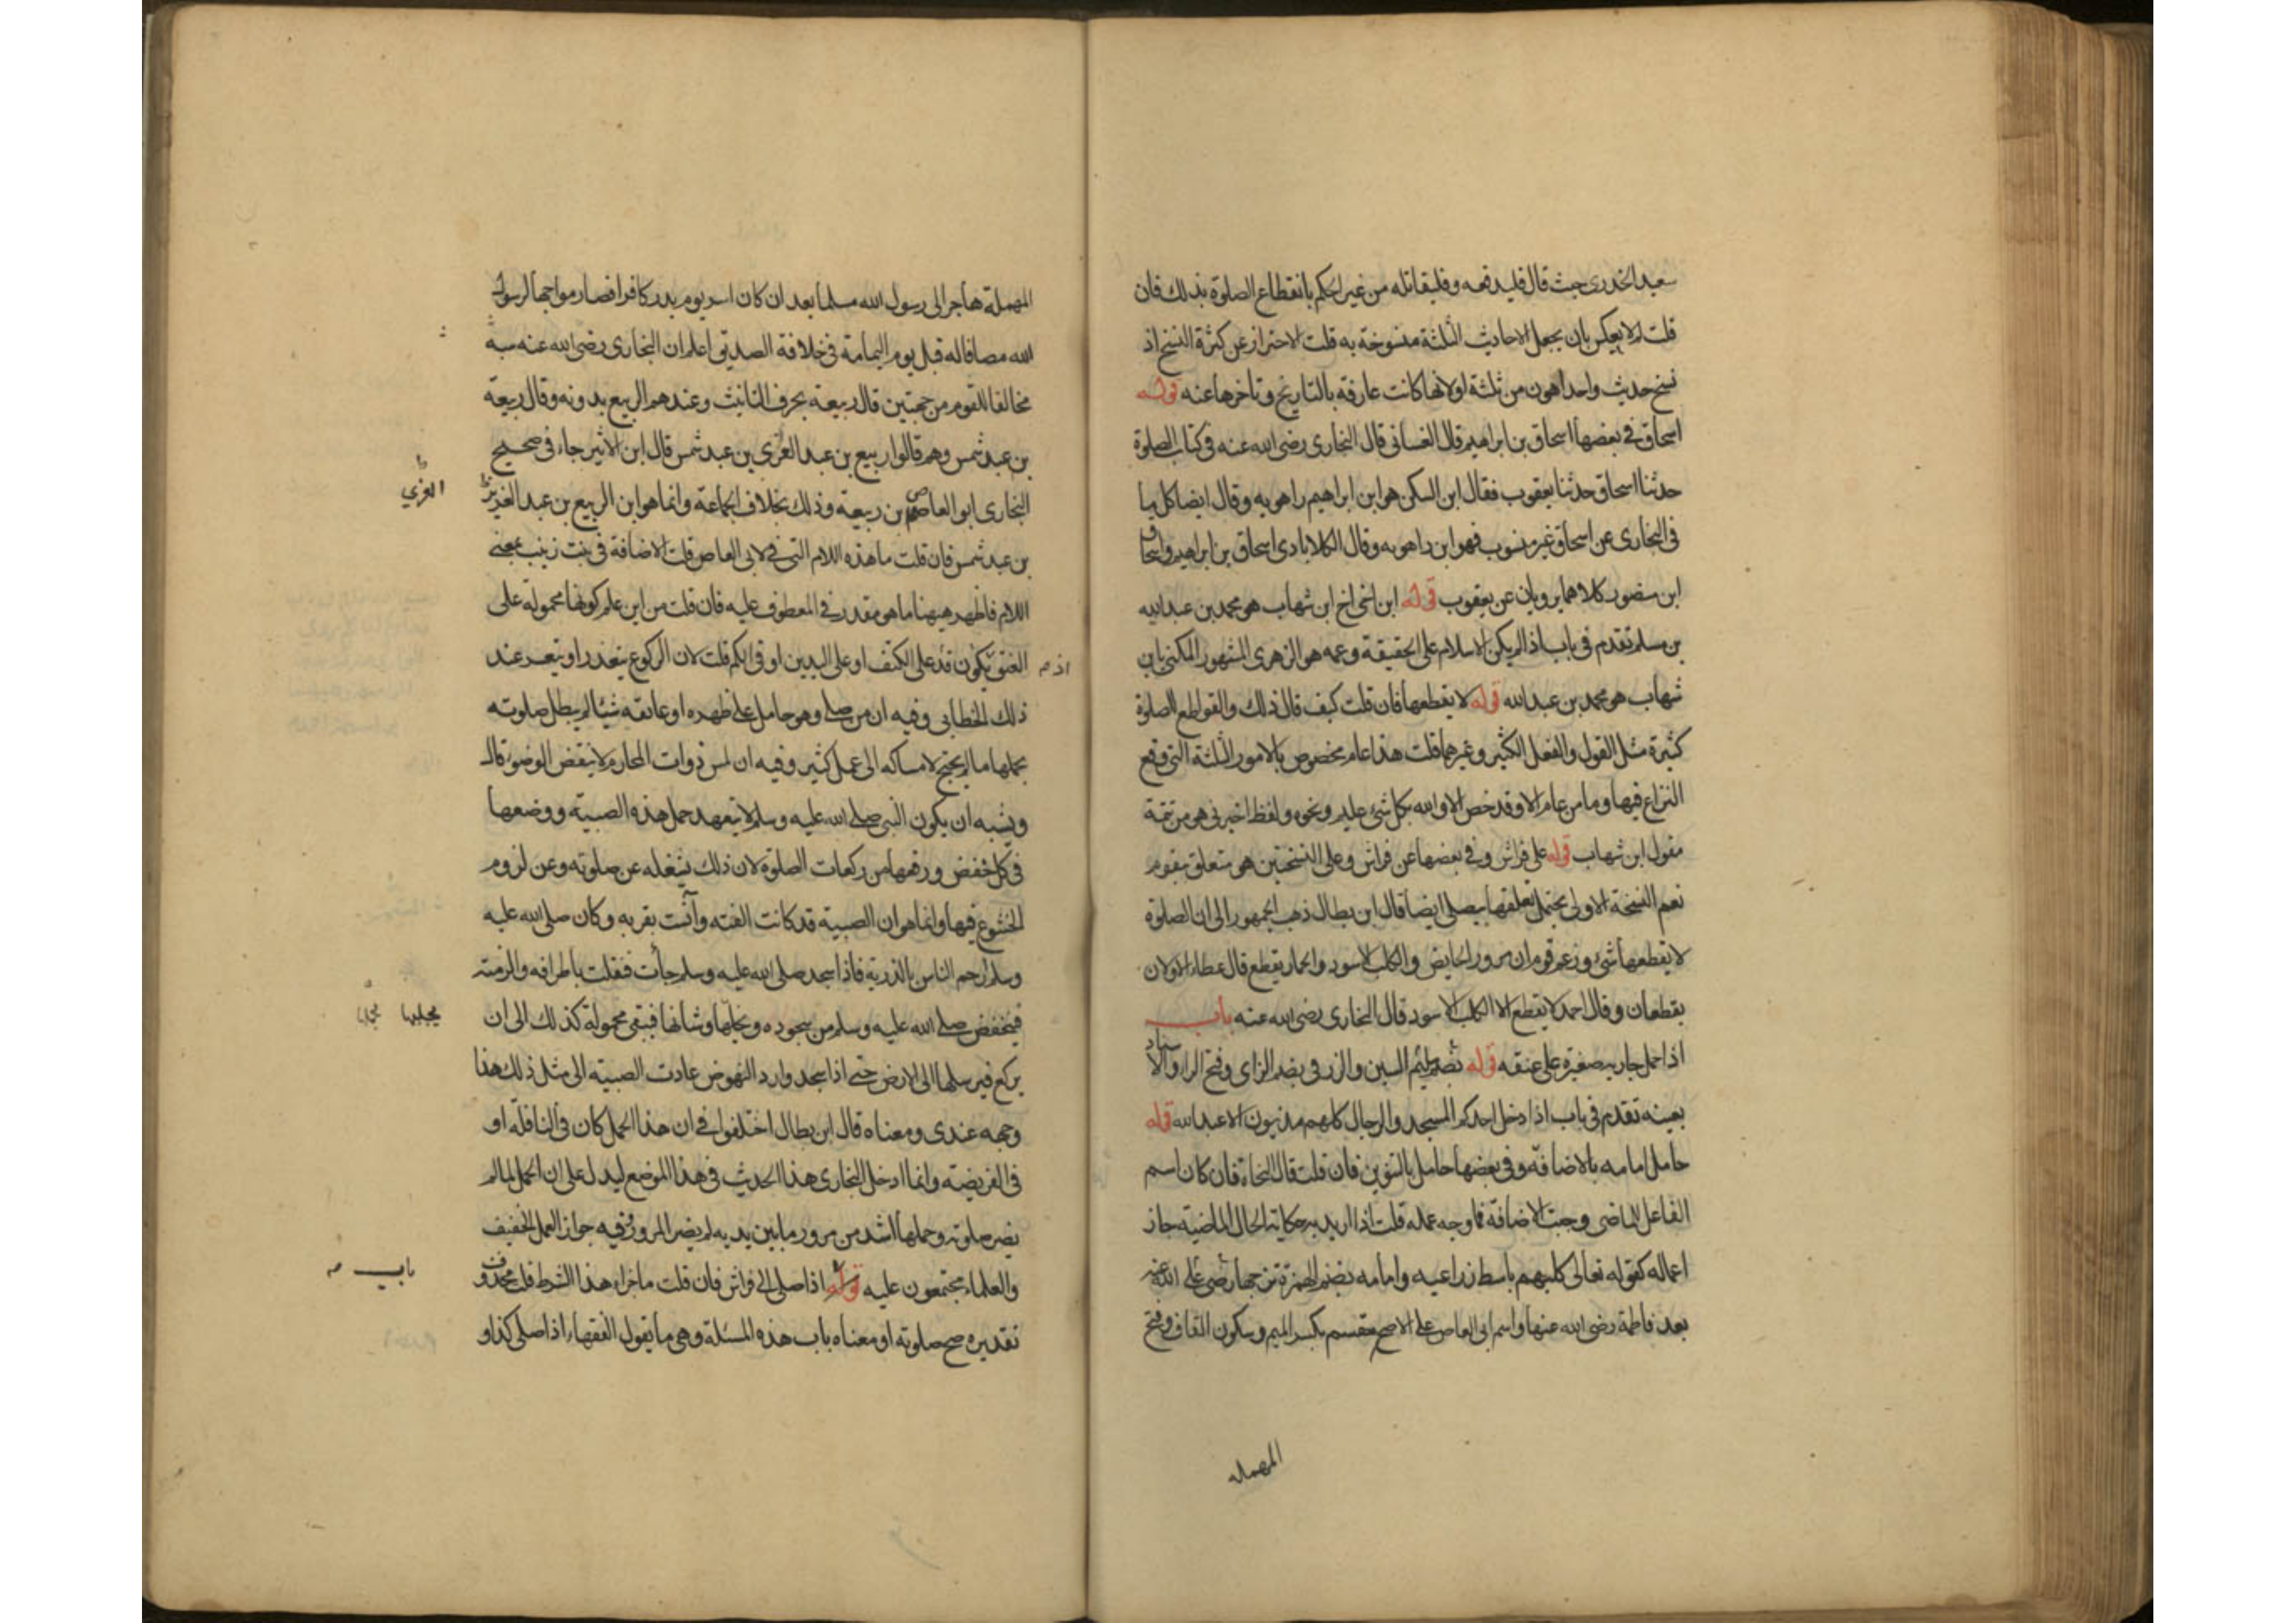 سعيد الخدرى حيث قال فليدفعه وفليقاتله من غير الحكم بانقطاع الصلوة بذلك فان
قلت لم لا يعكس بان يجعل الاحاديث الثلثة منسوخة به قلت الاحتراز عن كثرة النسخ اذ
نسخ حديث واحد اهون من ثلثة او لانها كانت عارفة بالتاريخ وتأخرها عنه قوله
اسحاق في بعضها اسحاق بن ابراهيم قال الغسانى قال البخارى رضى الله عنه فى كتاب الصلوة
حدثنا اسحاق حدثنا يعقوب فقال ابن السكن هو ابن ابراهيم راهويه وقال ايضا كل ما
فى البخارى عن اسحاق غير منسوب فهو ابن راهويه وقال الكلاباذى اسحاق بن ابراهيم واسحاق
ابن منصور كلاهما يرويان عن يعقوب قوله ابن اخى اخ ابن شهاب هو محمد بن عبد الله
بن مسلم تقدم فى باب اذا لم يكن الاسلام على الحقيقة وعمه هو الزهرى المشهور المكنى بابن
شهاب هو محمد بن عبد الله قوله لا يقطعها فان قلت كيف قال ذلك والقواطع الصلوة
كثيرة مثل القول والفعل الكثير وغيرهما قلت هذا عام مخصوص بالامور الثلثة التى وقع
النزاع فيها وما من عام الا وقد خص الا والله بكل شئ عليم ونحوه ولفظ اخبرنى هو من تتمة
مقول ابن شهاب قوله على فراش وفى بعضها عن فراش وعلى النسختين هو متعلق بيقوم
نعم النسخة الاولى يحتمل تعلقها بيصلى ايضا قال ابن بطال ذهب الجمهور الى ان الصلوة
لا يقطعها شئ وزعم قوم ان مرور الحايض والكلب الاسود والحمار يقطع قال عطاء الاولان
يقطعان وقال احمد لا يقطع الا الكلب الاسود قال البخارى رضى الله عنه باب
اذا حمل جارية صغيرة على عنقه قوله سليم السين والزرقى بضم الزاى وفتح الراء والاسناد
بعينه تقدم فى باب اذا دخل احدكم المسجد والرجال كلهم مدنيون الا عبد الله قوله
حامل امامه بالاضافة وفى بعضها حامل بالتنوين فان قلت قال النحاة فان كان اسم
الفاعل للماضى وجبت الاضافة فما وجه عمله قلت اذا اريد به حكاية الحال الماضية جاز
اعماله كقوله تعالى كلبهم باسط ذراعيه وامامه بضم الهمزة تزوجها على رضى الله عنه
بعد فاطمة رضى الله عنها واسم ابى العاص على الاصح مقسم بكسر الميم وسكون القاف وفتح
المهملة
المهملة هاجر الى رسول الله مسلما بعد ان كان اسر يوم بدر كافرا فصار مواخيا لرسول
الله مصافيا له قبل يوم اليمامة فى خلافة الصديق اعلم ان البخارى رضى الله عنه نسبه
مخالفا للقوم من جهتين قال ربيعة بحرف التانيث وعندهم الربيع بدونه وقال ربيعة
بن عبد شمس وهم قالوا ربيع بن عبد العزى بن عبد شمس قال ابن الاثير جاء فى صحيح
البخارى ابو العاص بن ربيعة وذلك بخلاف الجماعة وانما هو ابن الربيع بن عبد العزيز
العزي
بن عبد شمس فان قلت ما هذه اللام التى فى لابى العاص قلت الاضافة فى بنت زينب بمعنى
اللام فاظهر ههنا ما هو مقدر فى المعطوف عليه فان قلت من اين علم كونها محمولة على
العنق يكون قد على الكتف او على اليدين او فى الكم قلت لان الركوع يتعذر او يتعسر عند
اذ م
ذلك الخطابى وفيه ان من صلى وهو حامل على ظهره او عاتقه شيئا لم يبطل صلوته
بحملها ما لم يحتج لامساكه الى عمل كثير وفيه ان لمس ذوات المحارم لا ينقض الوضوء قال
ويشبه ان يكون النبى صلى الله عليه وسلم لا يتعهد حمل هذه الصبية ووضعها
فى كل خفض ورفع من ركعات الصلوة لان ذلك يشغله عن صلوته وعن لزوم
الخشوع فيها وانما هو ان الصبية قد كانت الفته وآنست بقربه وكان صلى الله عليه
وسلم ارحم الناس بالذرية فاذا سجد صلى الله عليه وسلم جأت فتعلقت باطرافه والزمته
فينخفض صلى الله عليه وسلم من سجوده ويخليها وشانها فتبقى محمولة كذلك الى ان
يركع فيرسلها الى الارض حتى اذا سجد واراد النهوض عادت الصبية الى مثل ذلك هذا
وجهه عندى ومعناه قال ابن بطال اختلفوا فى ان هذا الحمل كان فى النافلة او
فى الفريضة وانما ادخل البخارى هذا الحديث فى هذا الموضع ليدل على ان الحمل لما لم
يضر صلوته وحملها اشد من مرورها بين يديه لم يضر المرور وفيه جواز العمل الخفيف
والعلماء مجتمعون عليه قوله اذا صلى الى فراش فان قلت ما جزاء هذا الشرط قلت محذوف
باب
تقديره صح صلوته او معناه باب هذه المسئلة وهى ما يقول الفقهاء اذا صلى كذا و